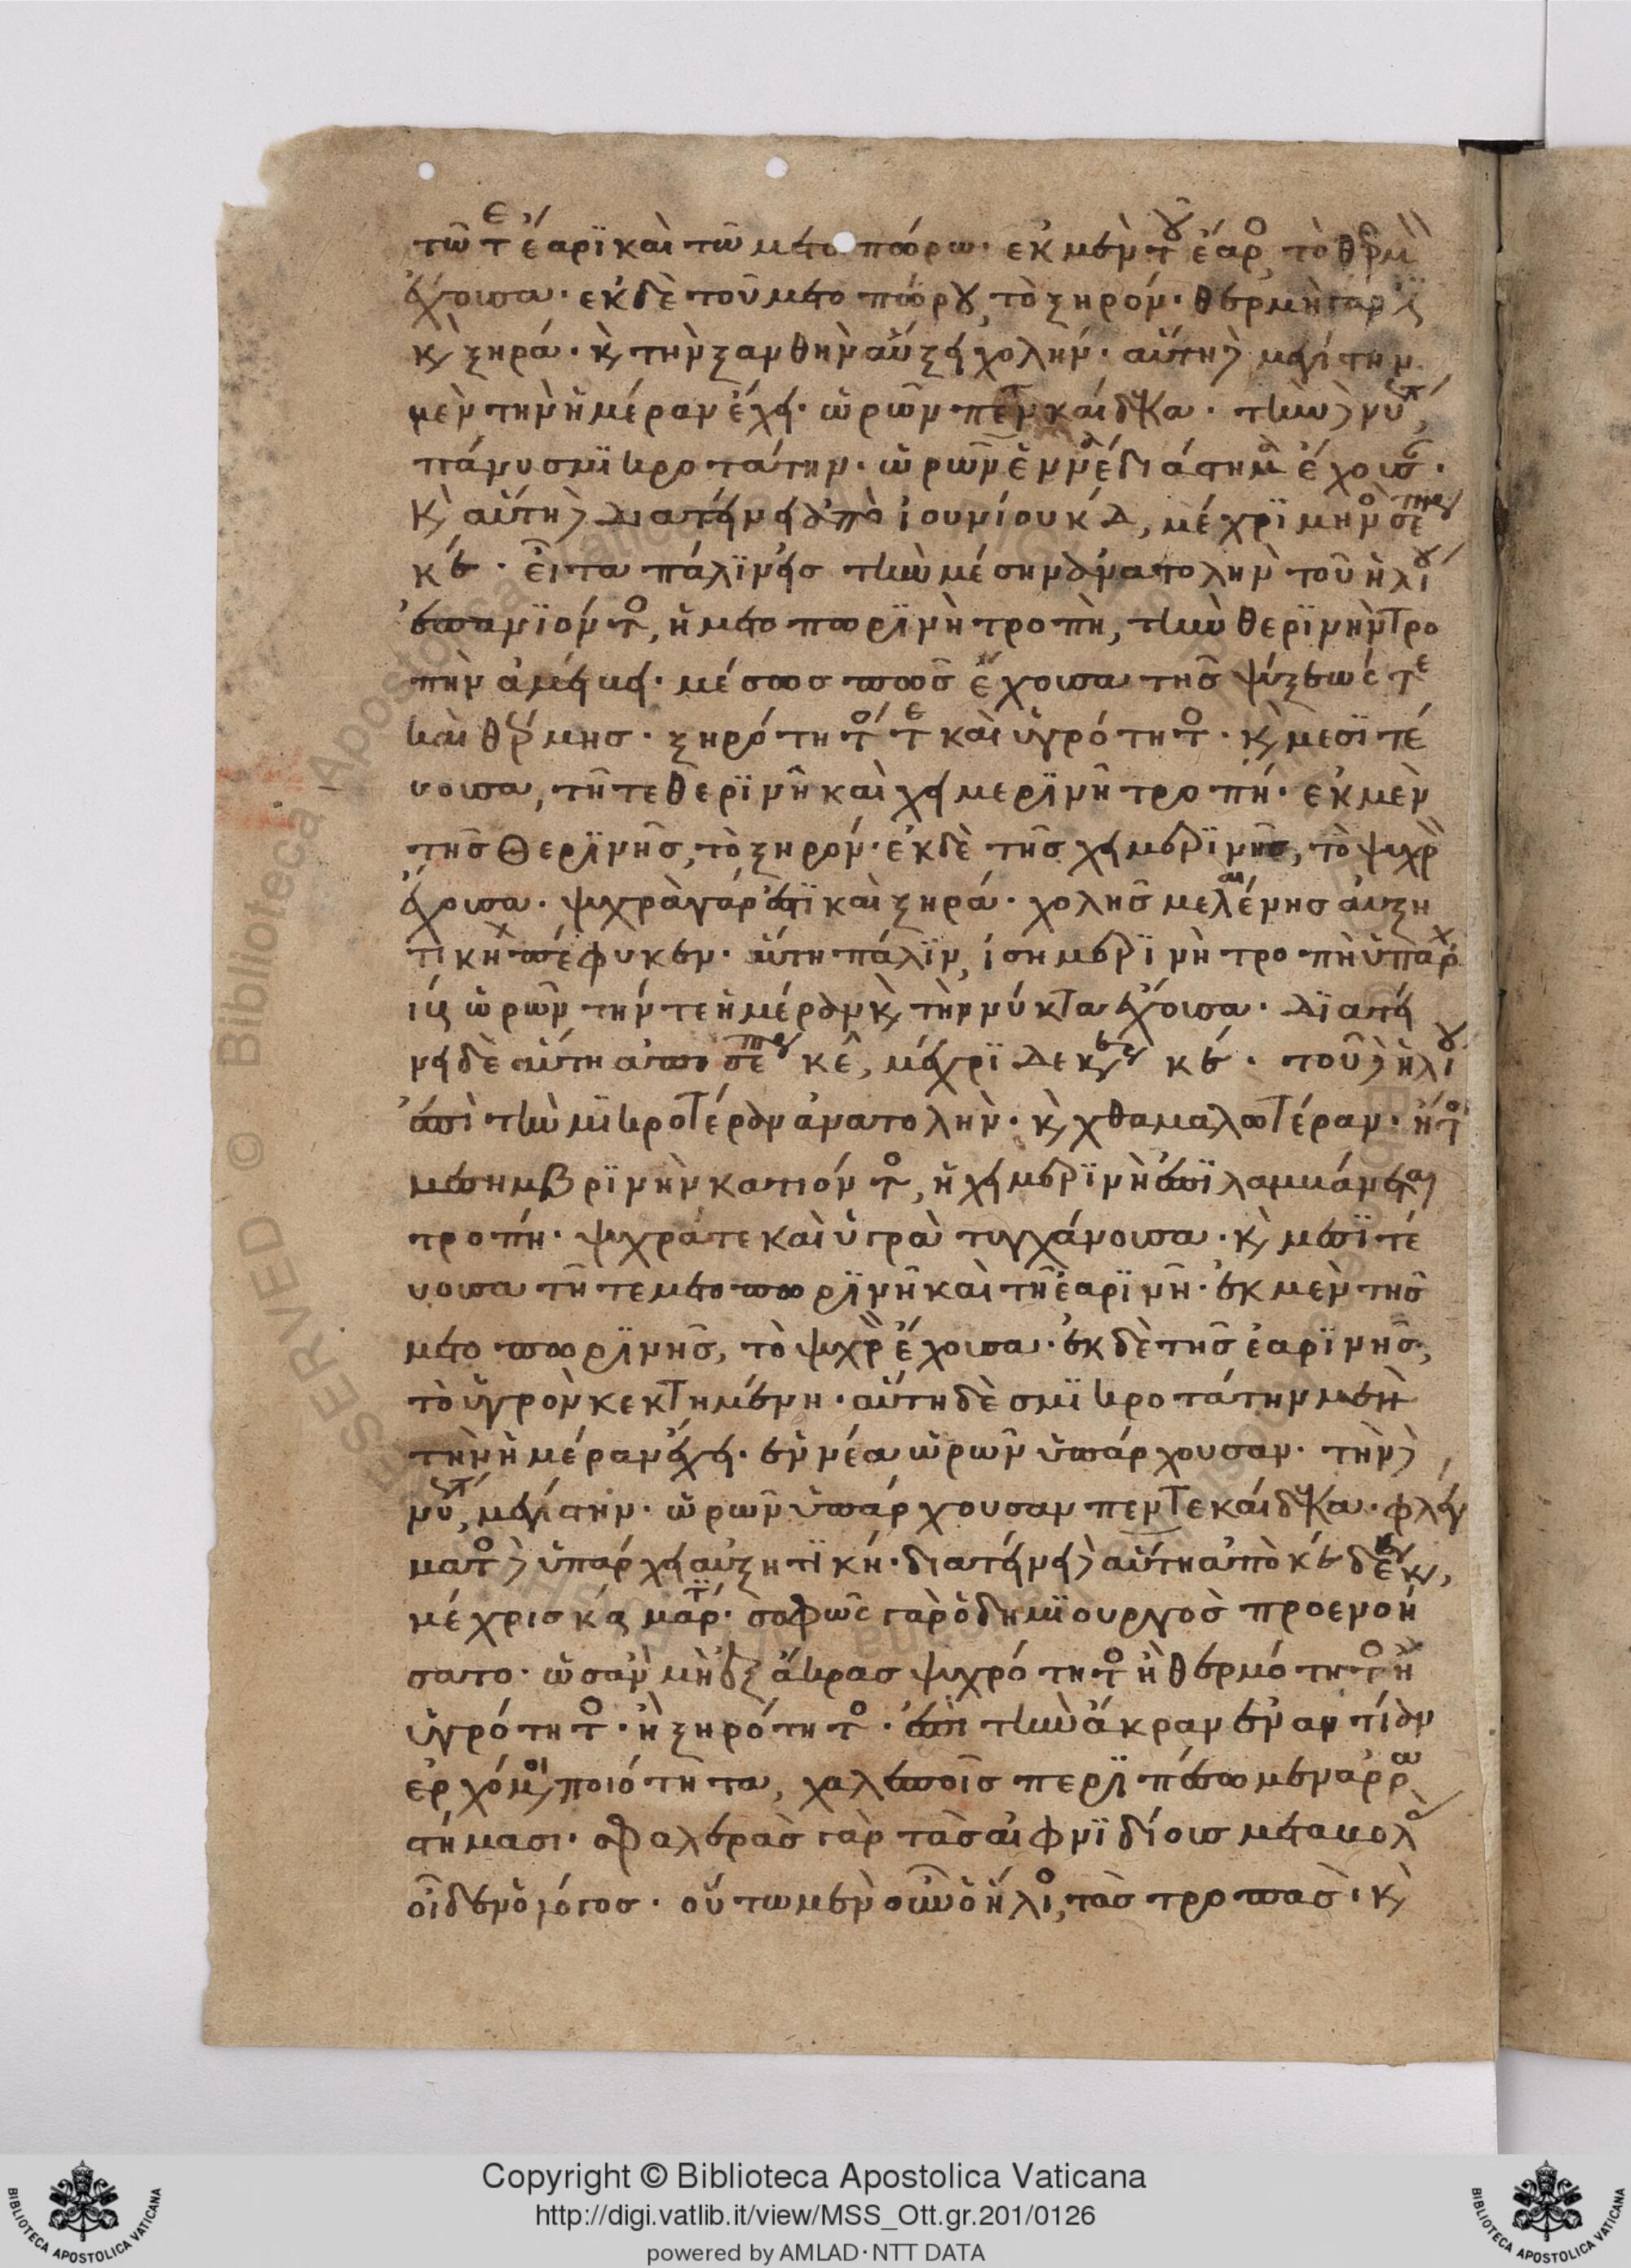 τῶ τε ἔαρϊ καὶ τῶ μετοπώρω· ἐκ μὲν τοῦ ἔαρος, τὸ θερμὸν
ἔχουσα· ἐκ δὲ τοῦ μετοπώρου, τὸ ξηρόν· θερμὴ γάρ ἐστϊ
καὶ ξηρά· καὶ τὴν ξανθὴν αὔξει χολήν· αὕτη δὲ μεγίστην
μὲν τὴν ἡμέραν ἔχει· ὡρῶν πεντεκαίδεκα· τὴν δὲ νύκτα,
πάνυ σμϊκροτάτην· ὡρῶν ἐννέα διάστημα ἔχουσαν·
καὶ αὕτη δὲ διατείνει ἀπὸ ἰουνίου κδ, μέχρϊ μηνὸς σεπτεμβρίου
κε· εἶτα πάλϊν εἰς τὴν μέσην ἀνατολὴν τοῦ ἡλίου
ἐπανϊόντος, ἡ μετοπωρϊνὴ τροπὴ, τὴν θερϊνὴν τρο
πὴν ἀμείβει· μέσως πως ἔχουσα τῆς ψύξεώς τε
καὶ θέρμης· ξηρότητός τε καὶ ὑγρότητος· καὶ μεσϊτέ
υουσα, τῆ τε θερϊνῆ καὶ χειμερϊνῆ τροπή· ἐκ μὲν
τῆς θερϊνῆς, τὸ ξηρόν· ἐκ δὲ τῆς χειμερϊνῆς, τὸ ψυχρὸν
ἔχουσα· ψυχρὰ γάρ ἐστϊ καὶ ξηρά· χολῆς μελαίνης αὐξη
τικὴ πέφυκεν· αὕτη πάλϊν, ἰσημερϊνὴ τροπὴ ὑπάρχει
ιβ ὡρῶν τήν τε ἡμέραν καὶ τὴν νύκτα ἔχουσα· δϊατεί
νει δὲ αὕτη ἀπὸ σεπτεμβρίου κε, μέχρϊ δεκεμβρίου κε· τοῦ δὲ ἡλίου
ἐπὶ τὴν μϊκροτέραν ἀνατολὴν· καὶ χθαμαλωτέραν· ἤτοι
μεσημβρϊνὴν κατιόντος, ἡ χειμερϊνὴ ἐπϊλαμβάνεται
τροπή· ψυχρά τε καὶ ὑγρὰ τυγχάνουσα· καὶ μεσϊτέ
υουσα τῆ τε μετοπωρϊνῆ καὶ τῆ ἐαρϊνῆ· ἐκ μὲν τῆς
μετοπωρϊνῆς, τὸ ψυχρὸν ἔχουσα· ἐκ δὲ τῆς ἐαρϊνῆς,
τὸ ὑγρὸν κεκτημένη· αὕτη δὲ σμϊκροτάτην μὲν
τὴν ἡμέραν ἔχει· ἐννέα ὡρῶν ὑπάρχουσαν· τὴν δὲ
νύκτα, μεγίστην· ὡρῶν ὑπάρχουσαν πεντεκαίδεκα· φλέγ
ματος δὲ ὑπάρχει αὐξητϊκή· διατείνει δὲ αὕτη ἀπὸ κε δεκεμβρίου,
μέχρις κα μαρτίου· σοφῶς γὰρ ὁ δημϊουργὸς προενοή
σατο· ὡς ἂν μὴ ἐξ ἄκρας ψυχρότητος ἢ θερμότητος ἢ
ὑγρότητος· ἢ ξηρότητος· ἐπὶ τὴν ἄκραν ἐναντίαν
ἐρχόμενοι ποιότητα, χαλεποῖς περϊπέσωμεν ἀρρω
στήμασι· σφαλερὰς γὰρ τὰς αἰφνϊδίους μεταβολὰς
οἶδεν ὁ λόγος· οὕτω μὲν οὖν ὁ ἥλιος, τὰς τροπὰς· καὶ
Copyright © Biblioteca Apostolica Vaticana
http://digi.vatlib.it/view/MSS_Ott.gr.201/0126
powered by AMLAD·NTT DATA